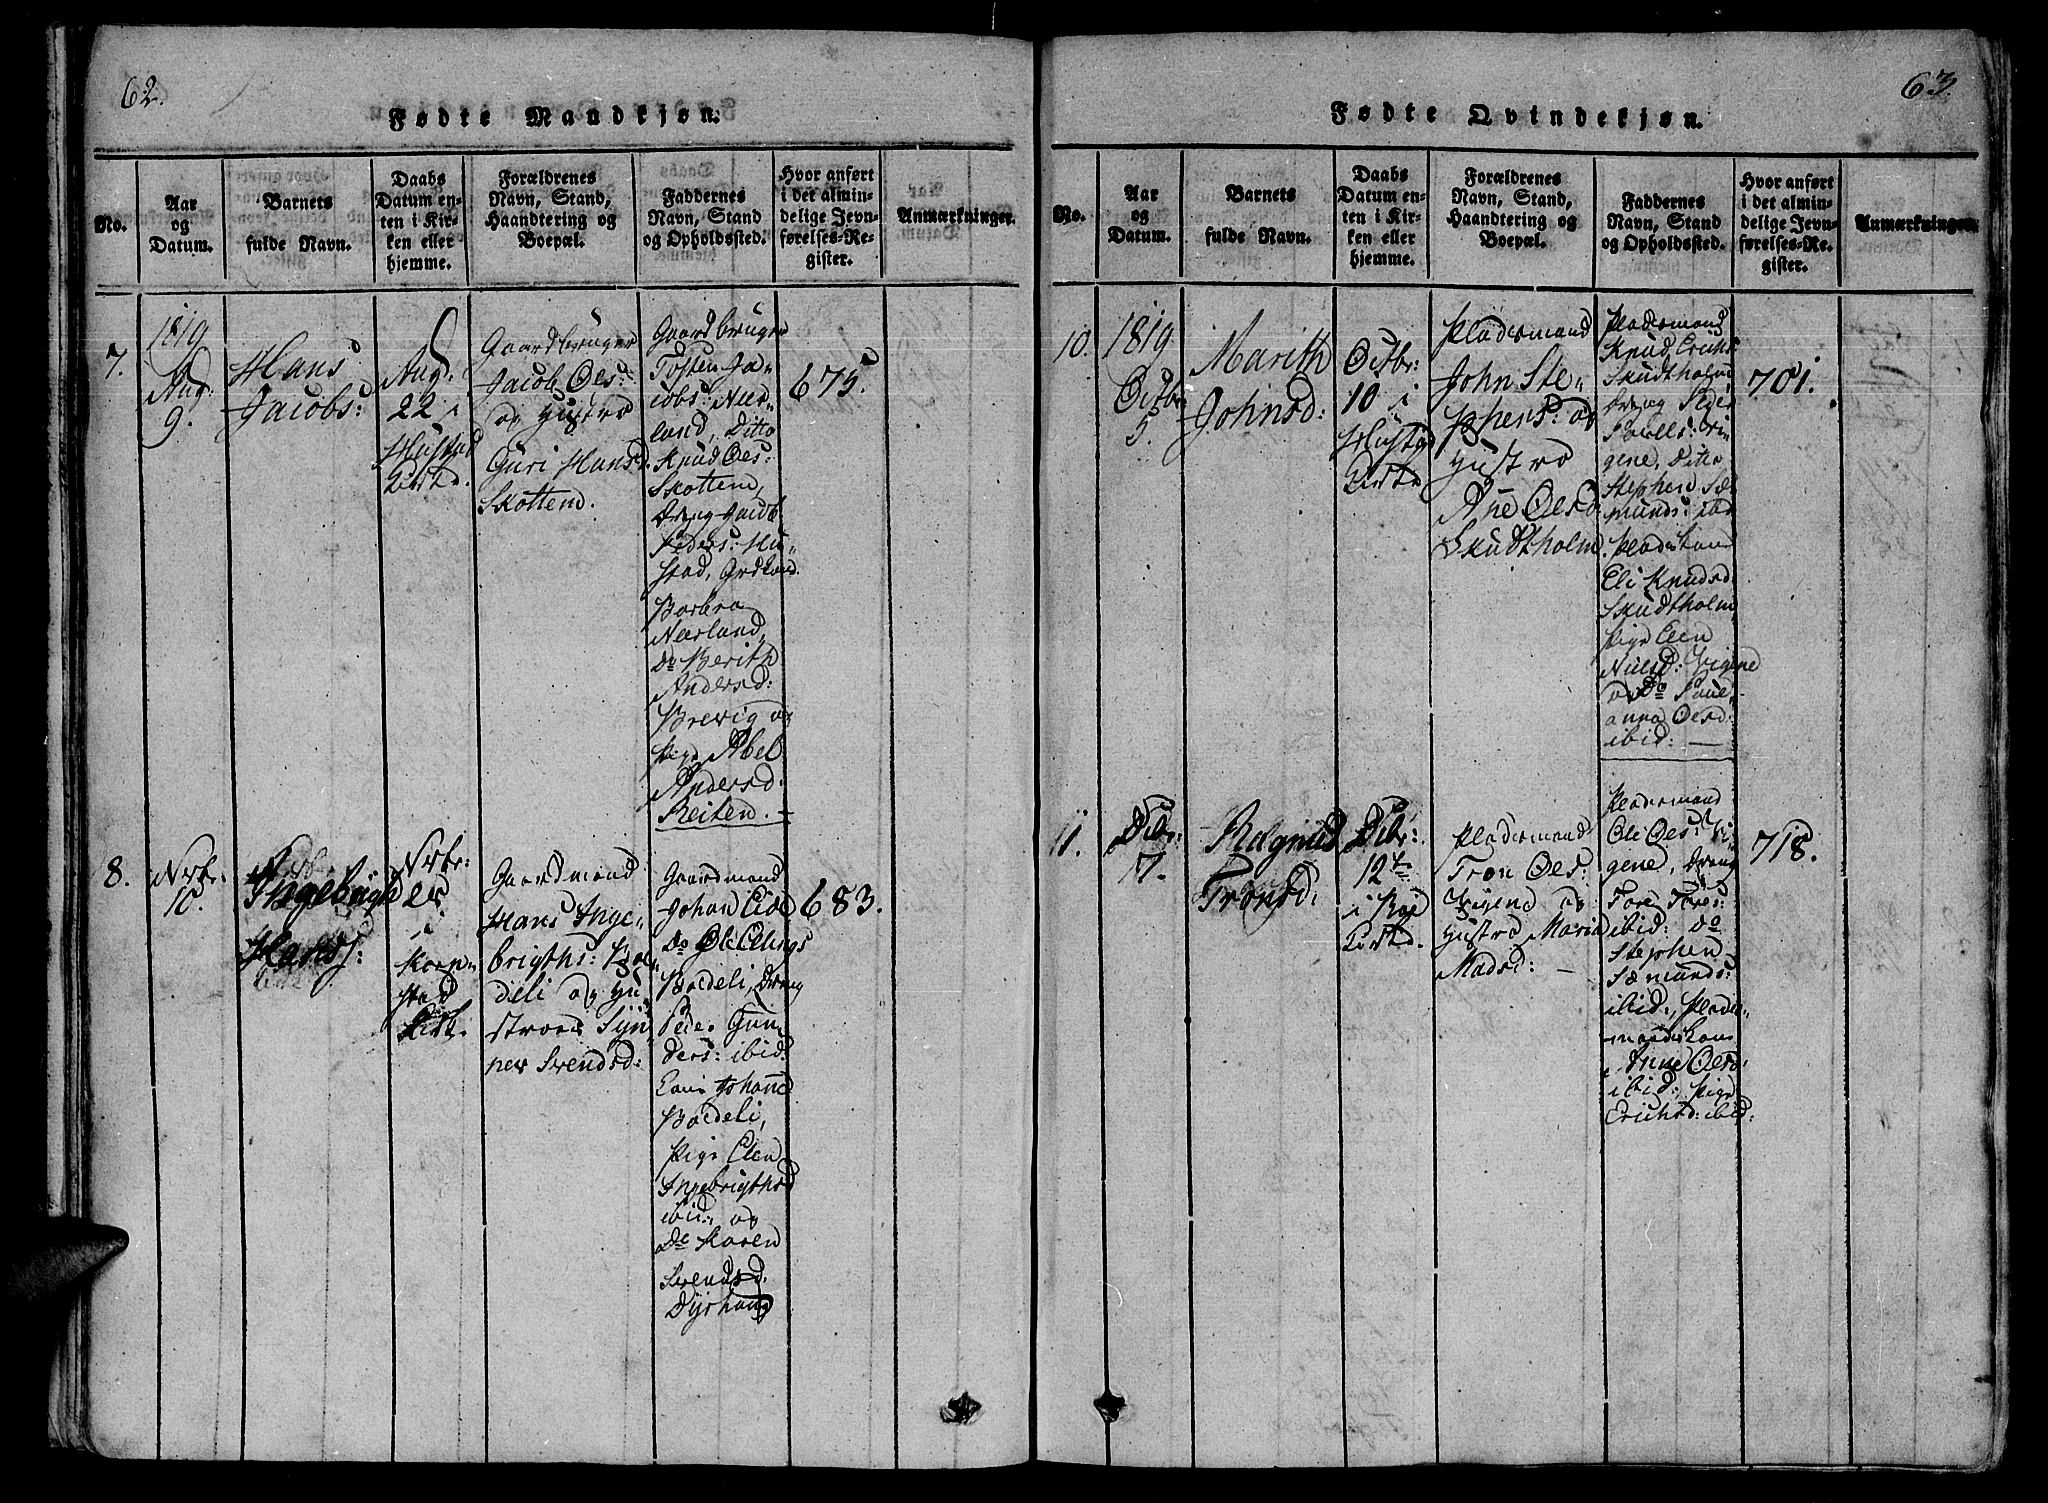 62.
Fødte Mandkjøn.
No.
Aar
og
Datum.
Barnets
fulde Navn.
Daabs
Datum en-
ten i Kir-
ken eller
hjemme.
Forældrenes
Navn, Stand,
Haandtering og
Boepæl.
Faddernes
Navn, Stand
og Opholdssted.
Hvor anført
i det almin-
delige Jevn-
førelses-Re-
gister.
Anmærkninger.
7.
1819
Aug:
9.
Hans
Jacobs:
Aug:
22 i
Hustad
Kirke.
Gaardbruger
Jacob Oles:
og Hustro
Guri Hansd.
Skotten.
Gaardbruger
Tosten Ja-
cobs: Nær-
land, Ditto
Knud Oles:
Skotten,
Dreng Jacob
Peders: Hu-
stad, Grdkone
Barbra
Nærland,
Do Berith
Andersd:
Brevig og
Pige Abel
Andersd:
Reiten. —
675.
8.
Nvbr.
10.
Ingebrigt
Hans:
Nvbr:
i
Korn-
stad
Kirk.
Gaardmand
Hans Inge-
brigths: Boe-
deli og Hu-
stroe Syn-
nev Svendsd:
Gaardmand
Johan Eide
Do Ole Ellings
Boedeli, Dreng
Peder Gun-
ders: ibid:
Kone Johanne
Boedeli,
Pige Elen
Ingebrigthsd
ibid: og
Do Karen
Svendsd.
Dyrhaug
683.
63.
Fødte Qvindekjøn.
No.
Aar
og
Datum.
Barnets
fulde Navn.
Daabs
Datum en-
ten i Kir-
ken eller
hjemme.
Forældrenes
Navn, Stand,
Haandtering og
Boepæl.
Faddernes
Navn, Stand
og Opholdssted.
Hvor anført
i det almin-
delige Jevn-
førelses-Re-
gister.
Anmærkninger.
10.
1819
Octbr
5.
Marith
Johnsd:
Octbr:
10 i
Hustad
Kirke
Pladsmand
John Ste-
phens: og
Hustro
Ane Olesd
Skudtholm.
Pladsmand
Knud Erichs
Skudtholm
Dreng Peder
Povels: Vi-
gene, Ditto
Stephen Sæ-
munds: ibd
Pladskone
Eli Knudsd
Skudtholm
Pige Elen
Nielsd: Vigene
og Do Pane-
anna Olesd:
ibid: —
701.
11.
Dcbr:
7.
Ragnild
Tronsd:
Dcbr:
12te
i Bod
Kirke.
Pladsmand
Tron Oles:
Vigene og
Hustro Maria
Madsd: —
Pladsmand
Ole Oles: Vi-
gene, Dreng
Tore Tores:
ibid: do
Stephen
Sæmunds:
ibid:, Plads-
mandskone
Anne Olesd:
ibid:, Pige
Erichsd: ibid:
718.